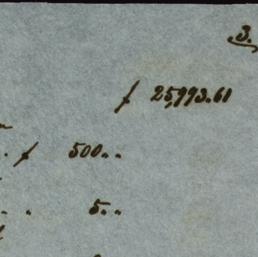 3.
ƒ 25,993.61
. ƒ 500..
. . 5..